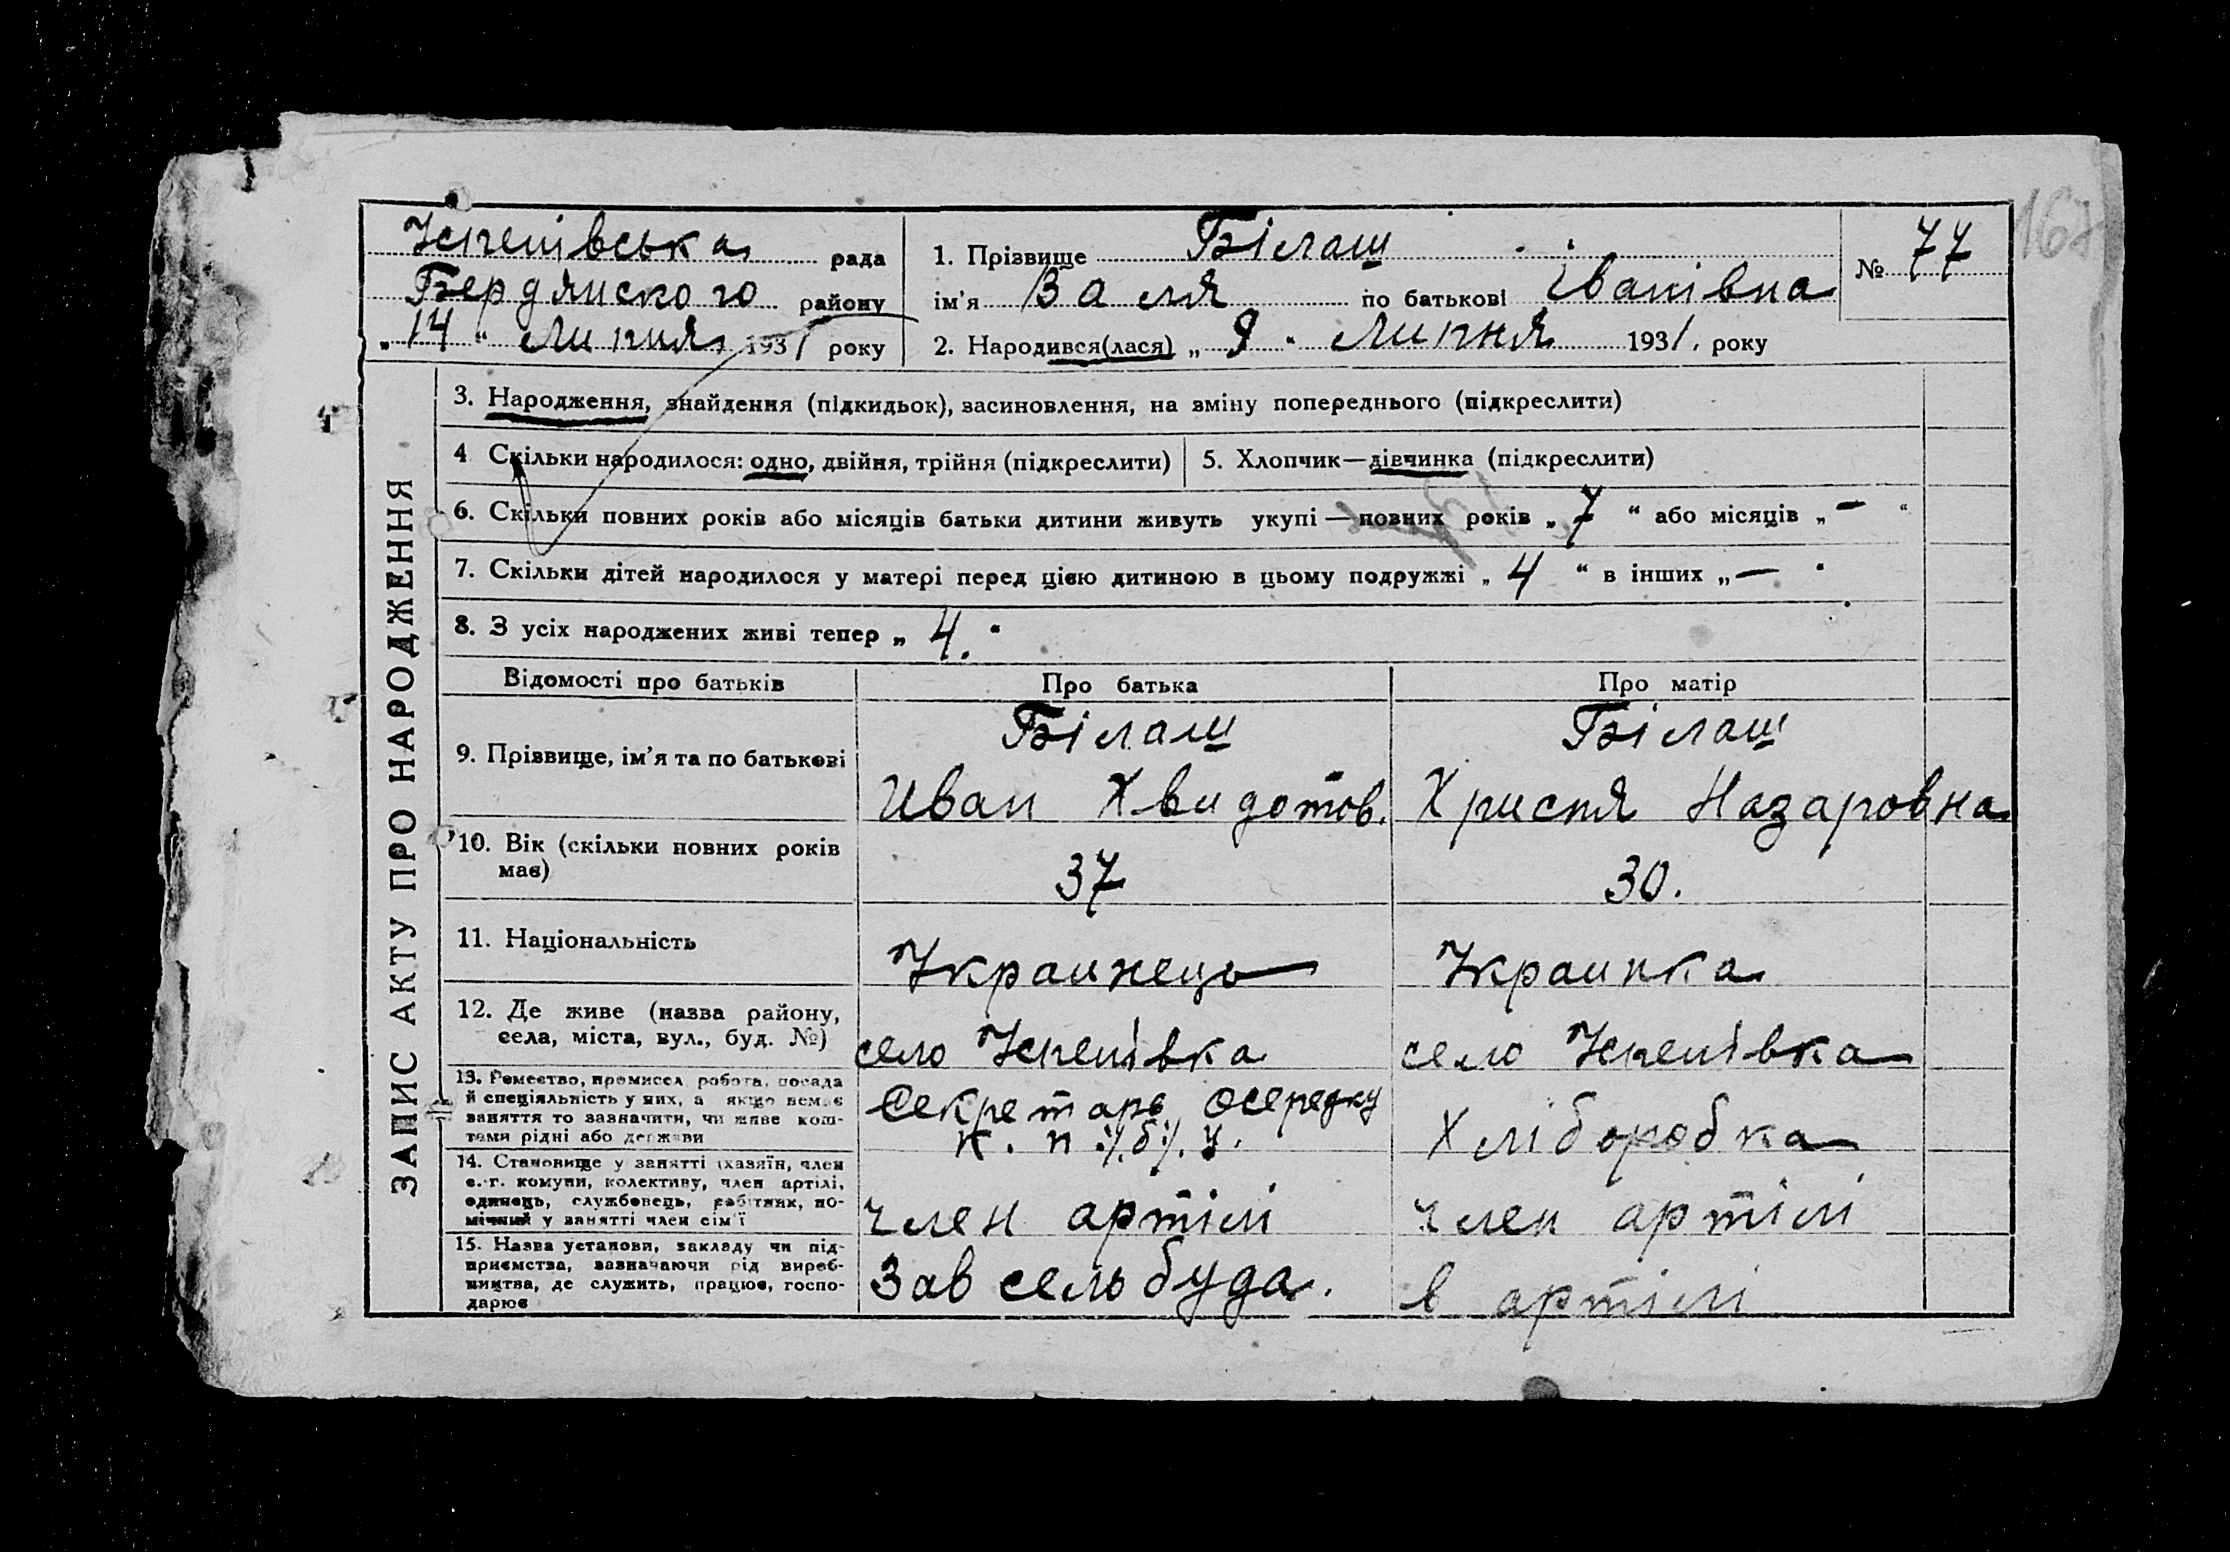 Успенівська рада
Бердянского району
„14“ Липня 1931 року
1. Прізвище Білаш
ім'я Валя по батькові Іванівна
2. Народився(лася) „9“ Липня 1931. року
№ 77
167
ЗАПИС АКТУ ПРО НАРОДЖЕННЯ
3. Народження, знайдення (підкидьок), засиновлення, на зміну попереднього (підкреслити)
4 Скільки народилося: одно, двійня, трійня (підкреслити)
5. Хлопчик—дівчинка (підкреслити)
6. Скільки повних років або місяців батьки дитини живуть укупі — повних років „7“ або місяців „—“
7. Скільки дітей народилося у матері перед цією дитиною в цьому подружжі „4“ в інших „—“
8. З усіх народжених живі тепер „4.“
Відомості про батьків Про батька Про матір
9. Прізвище, ім'я та по батькові
Білаш
Иван Хвидотов.
Білаш
Христя Назаровна
10. Вік (скільки повних років
має)
37
30.
11. Національність
Украинець
Украинка
12. Де живе (назва району,
села, міста, вул., буд. №)
село Успенівка
село Успенівка
13. Ремество, промисел, робота, посада
й спеціяльність у них, а якщо немає
заняття то зазначити, чи живе кош-
тами рідні або держави
Секретарь осередку
К. П./б/. У.
Хліборобка
14. Становище у занятті (хазяїн, член
с.-г. комуни, колективу, член артілі,
одинець, службовець, робітник, по-
мічний у занятті член сім'ї
член артілі
член артілі
15. Назва установи, закладу чи під-
приємства, зазначаючи рід вироб-
ництва, де служить, працює, госпо-
дарює
Зав сельбуда.
в артілі